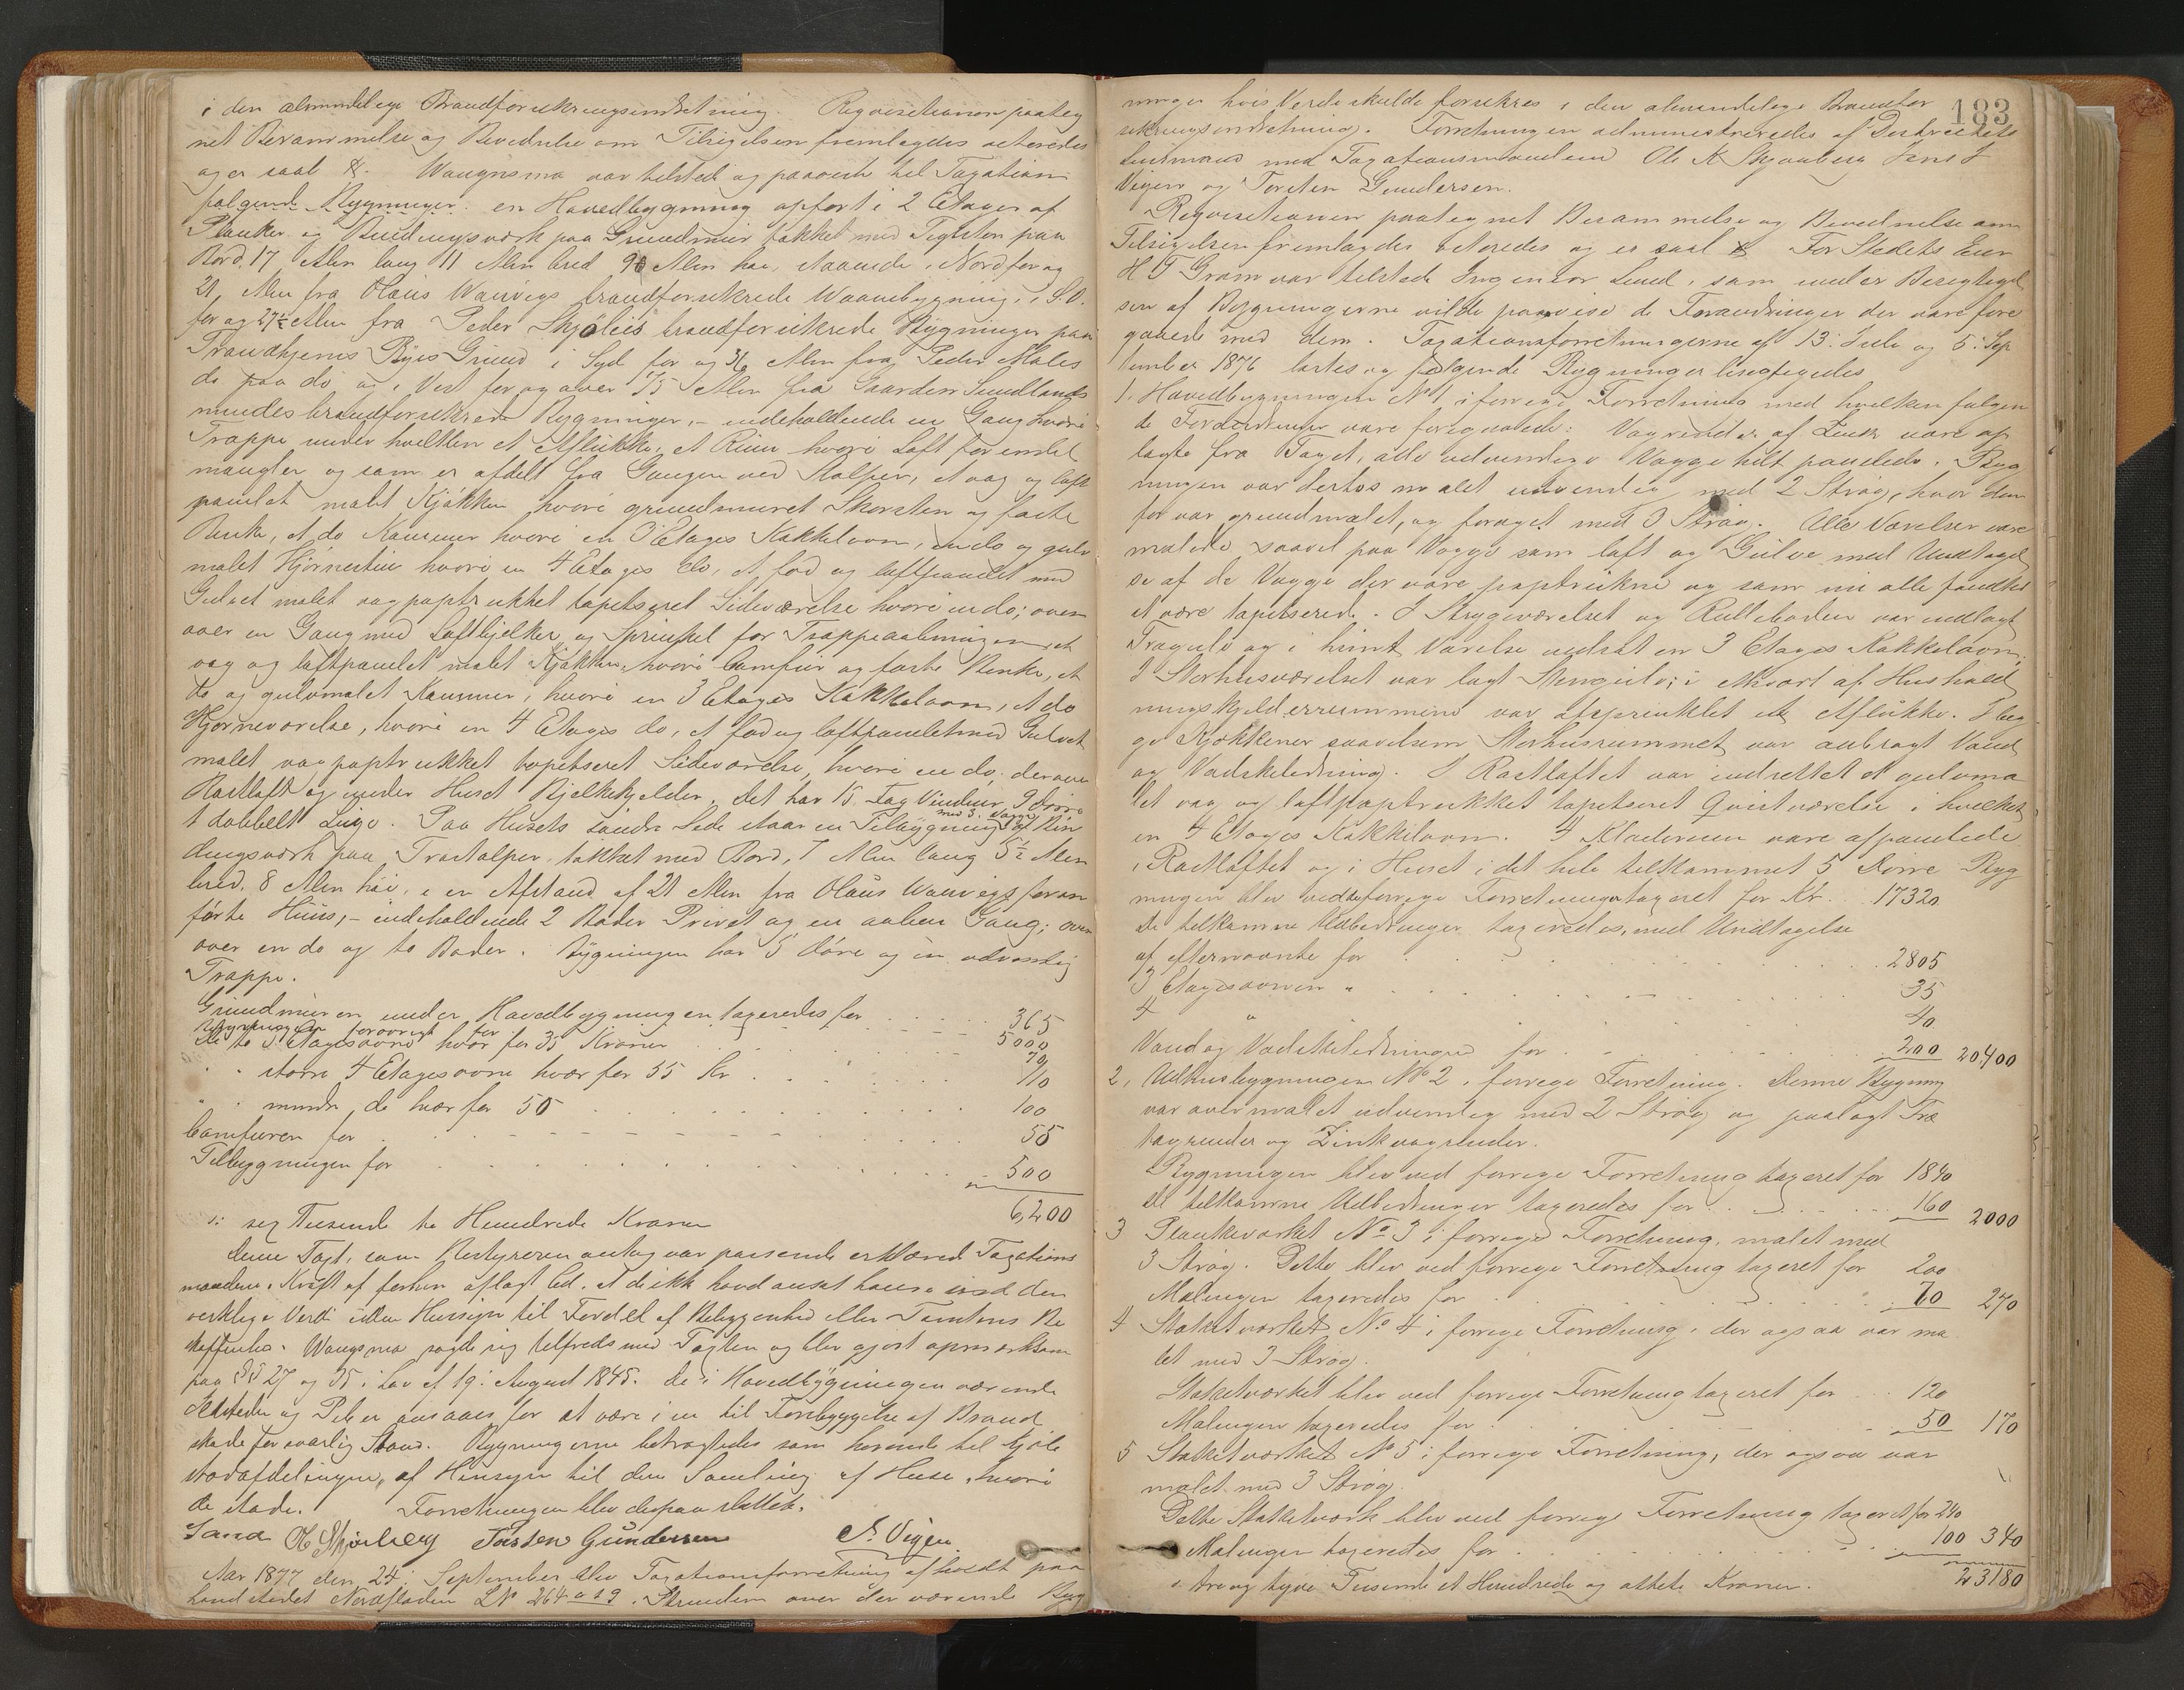 i den almindelige Brandforsikringsindretning. Reqvisitionen paateg
net Berammelse og Bevidnelse om Tilsigelsen fremlagdes acteredes
og er saal &. Wangsmo var tilstede og paaviste til Taxation
følgende Bygninger: en Hovedbygning opført i 2 Etager af
Planker og Bindingsværk paa Grundmuur takket med Teglsten paa
Bord, 17 Alen lang 11 Alen bred 9 Alen høi, staaende i Nord for og
21 Alen fra Olaus Wanvigs brandforsikrede Vaanebygning, i S.O.
for og 27½ Alen fra Peder Skjølies brandforsikrede Bygninger paa
Trondhjems Byes Grund i Syd for og 36 Alen fra Peder Males
do paa do og i Vest for og over 55 Alen fra Gaarden Sundlands
mindes brandforsikrede Bygninger, - indeholdende en Gang hvori
Trappe under hvilken et Aflukke, et Rum hvori Loft forendel
mangler og som er afdelt fra Gangen ved Stolper, et væg og loft
panelet malet Kjøkken hvori grundmuret Skorsten og faste
Bænke, et do Kammer hvori en 3 Etages Kakkelovn, en do og gulv
malet Hjørnestue hvori en 4 Etages do, et fod og loftpanelet med
Gulvet malet vægpaptrukket tapetseret Sideværelse hvori en do; oven
over en Gang med Loftbjelker og Sprinkel for Trappeaabningen, et
væg og loftpanelet malet Kjøkken hvori Comfur og faste Bænke, et
do og gulvmalet Kammer, hvori en 3 Etages Kakkelovn, et do
Hjørneværelse, hvori en 4 Etages do, et fod og loftpanelet med Gulvet
malet vægpaptrukket tapetseret Sideværelse, hvori en do; derover
Rastloft og under Huset Bjelkekjelder. Det har 15 Fag Vinduer, 9 Døre
1 dobbelt Luge. Paa Husets søndre Side staar en Tilbygning med 3 Vægge af Bin
dingsværk paa Træstolper, takket med Bord, 7 Alen lang 5½ Alen
bred, 8 Alen høi, i en Afstand af 21 Alen fra Olaus Wanvigs foran
førte Huus, - indeholdende 2 Boder Privet og en aaben Gang; oven
over en do og to Boder. Bygningen har 5 Døre og en udvendig
Trappe.
Grundmuren under Hovedbygningen taxeredes for . . . 365
Bygningen forøvrigt for . . . 5000
De to 3 Etagesovne hver for 35 Kroner . . . 70
" " større 4 Etagesovne hver for 55 Kr . . . 110
" " mindre do hver for 50 . . . 100
Comfuren for . . . 55
Tilbygningen for . . . 500
6,200
: sex Tusende to Hundrede Kroner
denne Taxt, som Bestyreren antog var passende erklærede Taxations
mændene i Kraft af forhen aflagt Ed, at de ikke havde ansat høiere end den
virkelige Værdi uden Hensyn til Fordel af Beliggenhed eller Tomtens Be
skaffenhed. Wangsmo sagde sig tilfreds med Taxten og blev gjort opmærksom
paa §§ 27 og 35 i Lov af 19: August 1845. De i Hovedbygningen værende
Ildsteder og Piber ansaaes for at være i en til Forebyggelse af Brand
skade forsvarlig Stand. Bygningerne betragtedes som hørende til Kjøb
stadafdelingen, af Hensyn til den Samling af Huse, hvori
de stode. Forretningen blev derpaa sluttet.
Sand O K Skjølberg Torsten Gundersen J. Vigen
Aar 1877 den 24: September blev Taxationsforretning afholdt paa
Landstedet Nordfladen LN 264 a & 9 i Strinden over der værende Byg
183
ninger hvis Værdi skulde forsikres i den almindelige Brandfor
sikringsindretning. Forretningen administreredes af Districtets
Lensmand med Taxationsmændene Ole K Skjølberg Jens J
Vigen og Torsten Gundersen.
Reqvisitionen paategnet Berammelse og Bevidnelse om
Tilsigelsen fremlagdes acteredes og er saal & For Stedets Eier
H T Gram var tilstede Ingeniør Lund, som under Besigtigel
sen af Bygningerne vilde paavise de Forandringer der vare fore
gaaede med dem. Taxationsforretningerne af 13: Juli og 5: Sep
tember 1876 læstes og følgende Bygninger besigtigedes
1, Hovedbygningen No 1 i forrige Forretning med hvilken følgen
de Forandringer vare foregaaede: Vagrender af Zink vare op
lagte fra Taget, alle udvendige Vægge helt panelede. Byg
ningen var dertos malet udvendig med 2 Strøg, hvor den
før var grundmalet, og forøget med 3 Strøg. Alle Værelser vare
malede saavel paa Vægge som loft og Gulve med Undtagel
se af de Vægge der vare paptrukne og som nu alle fandtes
at være tapetserede. I Strygeværelset og Rulleboden var indlagt
Trægulv og i hiint Værelse indsat en 3 Etages Kakkelovn.
I Storhusværelset var lagt Stengulv; i ethvert af Hushold
ningskjelderrummene var afsprinklet et Aflukke. I beg
ge Kjøkkener saavelsom Storhusrummet var anbragt Vand
og Vadskeledning. I Rastloftet var indrettet et gulvma
let væg og loftpaptrukket tapetseret Qvistværelse i hvilket
en 4 Etages Kakkelovn. 4 Kladerum vare afpanelede
i Rastloftet og i Huset i det hele tilkommet 5 Dørre Byg
ningen blev ved forrige Forretninger taxeret for Kr. 17320
De tilkomne Udbedringer taxeredes, med Undtagelse
af efternævnte for . . . 2805
3 Etagesovnen " . . . 35
4 " . . . 40
Vand og Vadskeledningen for . . . 200 20,400
2, Udhusbygningen No 2 i forrige Forretning. Denne Bygning
var overmalet udvendig med 2 Strøg og paalagt Træ
tagrender og Zinkvagrender.
Bygningen blev ved forrige Forretning taxeret for 1840
de tilkomne Udbedringer taxeredes for . . . 160 2000
3 Plankeværket No 3 i forrige Forretning, malet med
3 Strøg. Dette blev ved forrige Forretning taxeret for 200
Malingen taxeredes for . . . 70 270
4 Stakitværket No 4 i forrige Forretning, der ogsaa var ma
let med 3 Strøg.
Stakitværket blev ved forrige Forretning taxeret for . . 120
Malingen taxeredes for . . . 50 170
5 Stakitværket No 5 i forrige Forretning, der ogsaa var
malet med 3 Strøg.
Dette Stakitværk blev ved forrige Forretning taxeret for 240
Malingen taxeredes for . . . 100 340
: tre og tyve Tusende et Hundrede og otteti Kroner. 23180